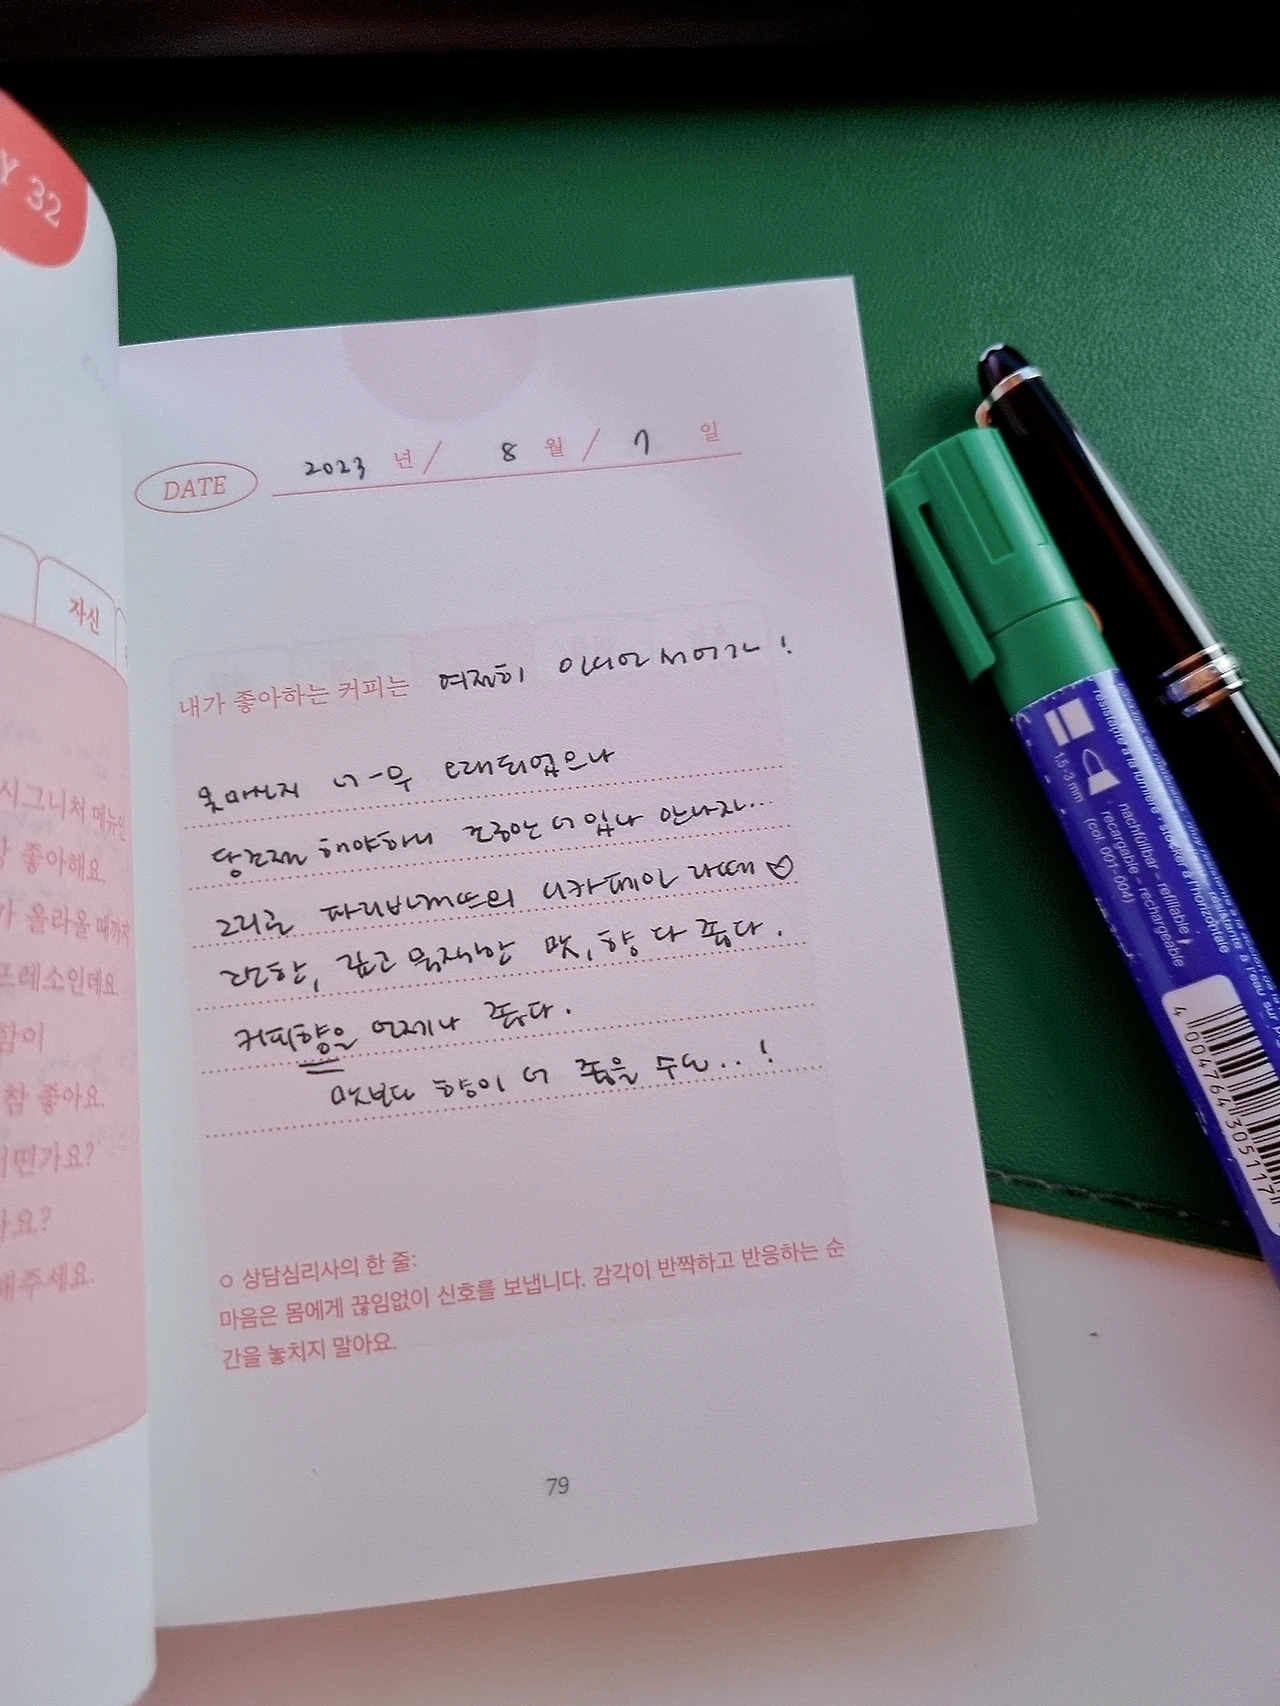 Y 32
자신
시그니처 메뉴인
좋아해요.
가 올라올 때까지
프레소인데요
함이
참 좋아요.
어떤가요?
나요?
해주세요.
DATE 2023 년 / 8 월 / 7 일
내가 좋아하는 커피는 여전히 인디언 서머가!
못마신지 너-무 오래되었으나
당근해야하니 그동안 더 있나 안나지...
그리고 파리바게뜨의 디카페인 라떼♡
진한, 깊고 묵직한 맛, 향 다 좋다.
커피향을 언제나 좋다.
맛보다 향이 더 좋을 수도..!
○ 상담심리사의 한 줄:
마음은 몸에게 끊임없이 신호를 보냅니다. 감각이 반짝하고 반응하는 순
간을 놓치지 말아요.
79
1.5-3 mm
nachfüllbar – refillable
recargable – rechargeable
(col. 001-004)
résistante à la lumière · stocker à l'horizontale
4 004764 305117